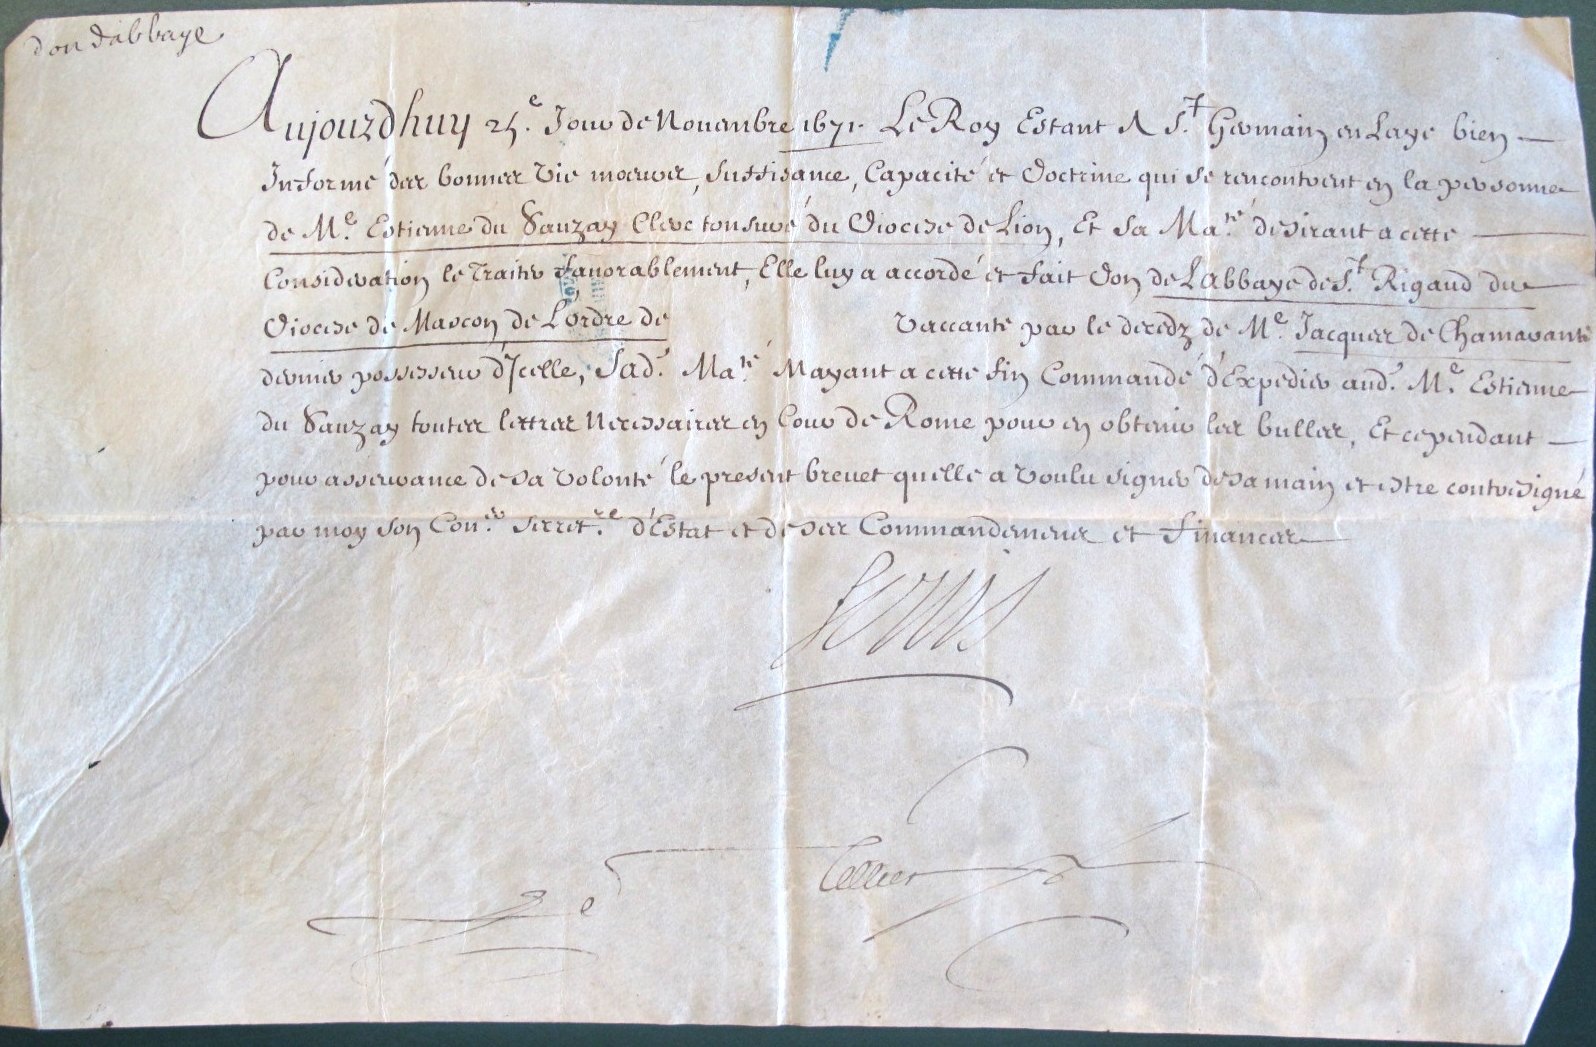 don dabbaye
Aujourdhuy 25.e Jour de Novembre 1671. Le Roy Estant A St. Germain en Laye bien
Informé des bonnes vie moeurs, suffisance, Capacité et doctrine qui se rencontrent en la personne
de Me. Estienne du Sauzay Clerc tonsuré du Diocese de Lion, Et sa Maté. desirant a cette
Consideration le traiter favorablement, Elle luy a accordé et fait don de Labbaye de St. Rigaud du
Diocese de Mascon de Lordre de vaccante par le decedz de Me. Jacques de Chamarante
dernier possesseur dIcelle, Sad. Maté. Mayant a cette fin Commandé d'Expedier aud. Me. Estienne
du Sauzay toutes lettres Necessaires en Cour de Rome pour en obtenir les bulles, Et cependant
pour asseurance de sa volonté le present brevet quelle a voulu signer de sa main et estre contresigné
par moy son Conr. Secretre. d'Estat et de ses Commandemens et finances
Louis
Le Tellier